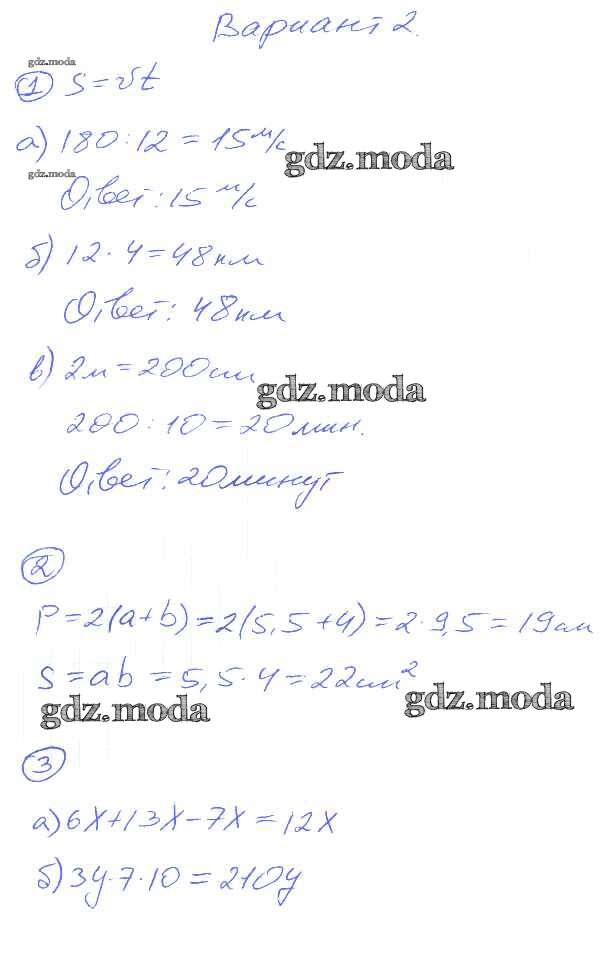 Вариант 2.
gdz.moda
① S = vt
а) 180 : 12 = 15 м/с
gdz.moda
gdz.moda
Ответ: 15 м/с
б) 12 · 4 = 48 км
Ответ: 48 км
в) 2м = 200см
gdz.moda
200 : 10 = 20 мин.
Ответ: 20 минут
②
P = 2(a+b) = 2(5,5+4) = 2 · 9,5 = 19 см
S = ab = 5,5 · 4 = 22 см²
gdz.moda
gdz.moda
③
а) 6x+13x-7x = 12x
б) 3y · 7 · 10 = 210y